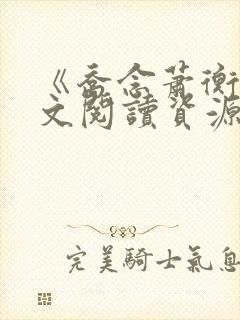 《喬念蕭衡
文閱讀資源
完美騎士氣息